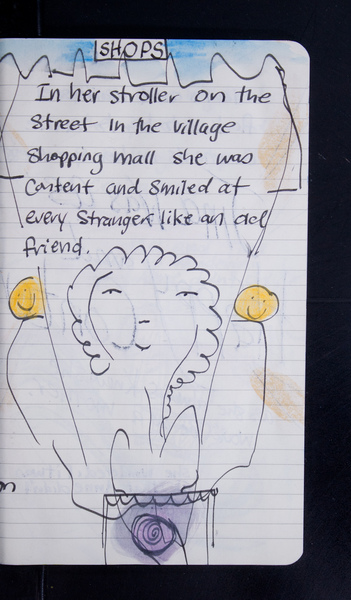 SHOPS
In her stroller on the
Street In the village
Shopping mall she was
Content and Smiled at
every Stranger like an
friend.